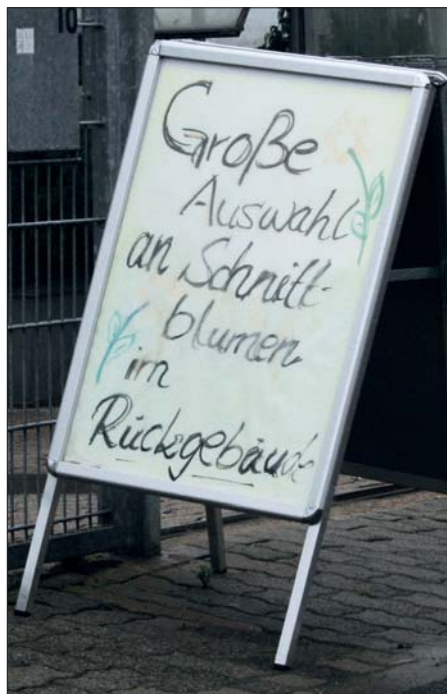 10
Große
Auswahl
an Schnitt-
blumen
im
Rückgebäude